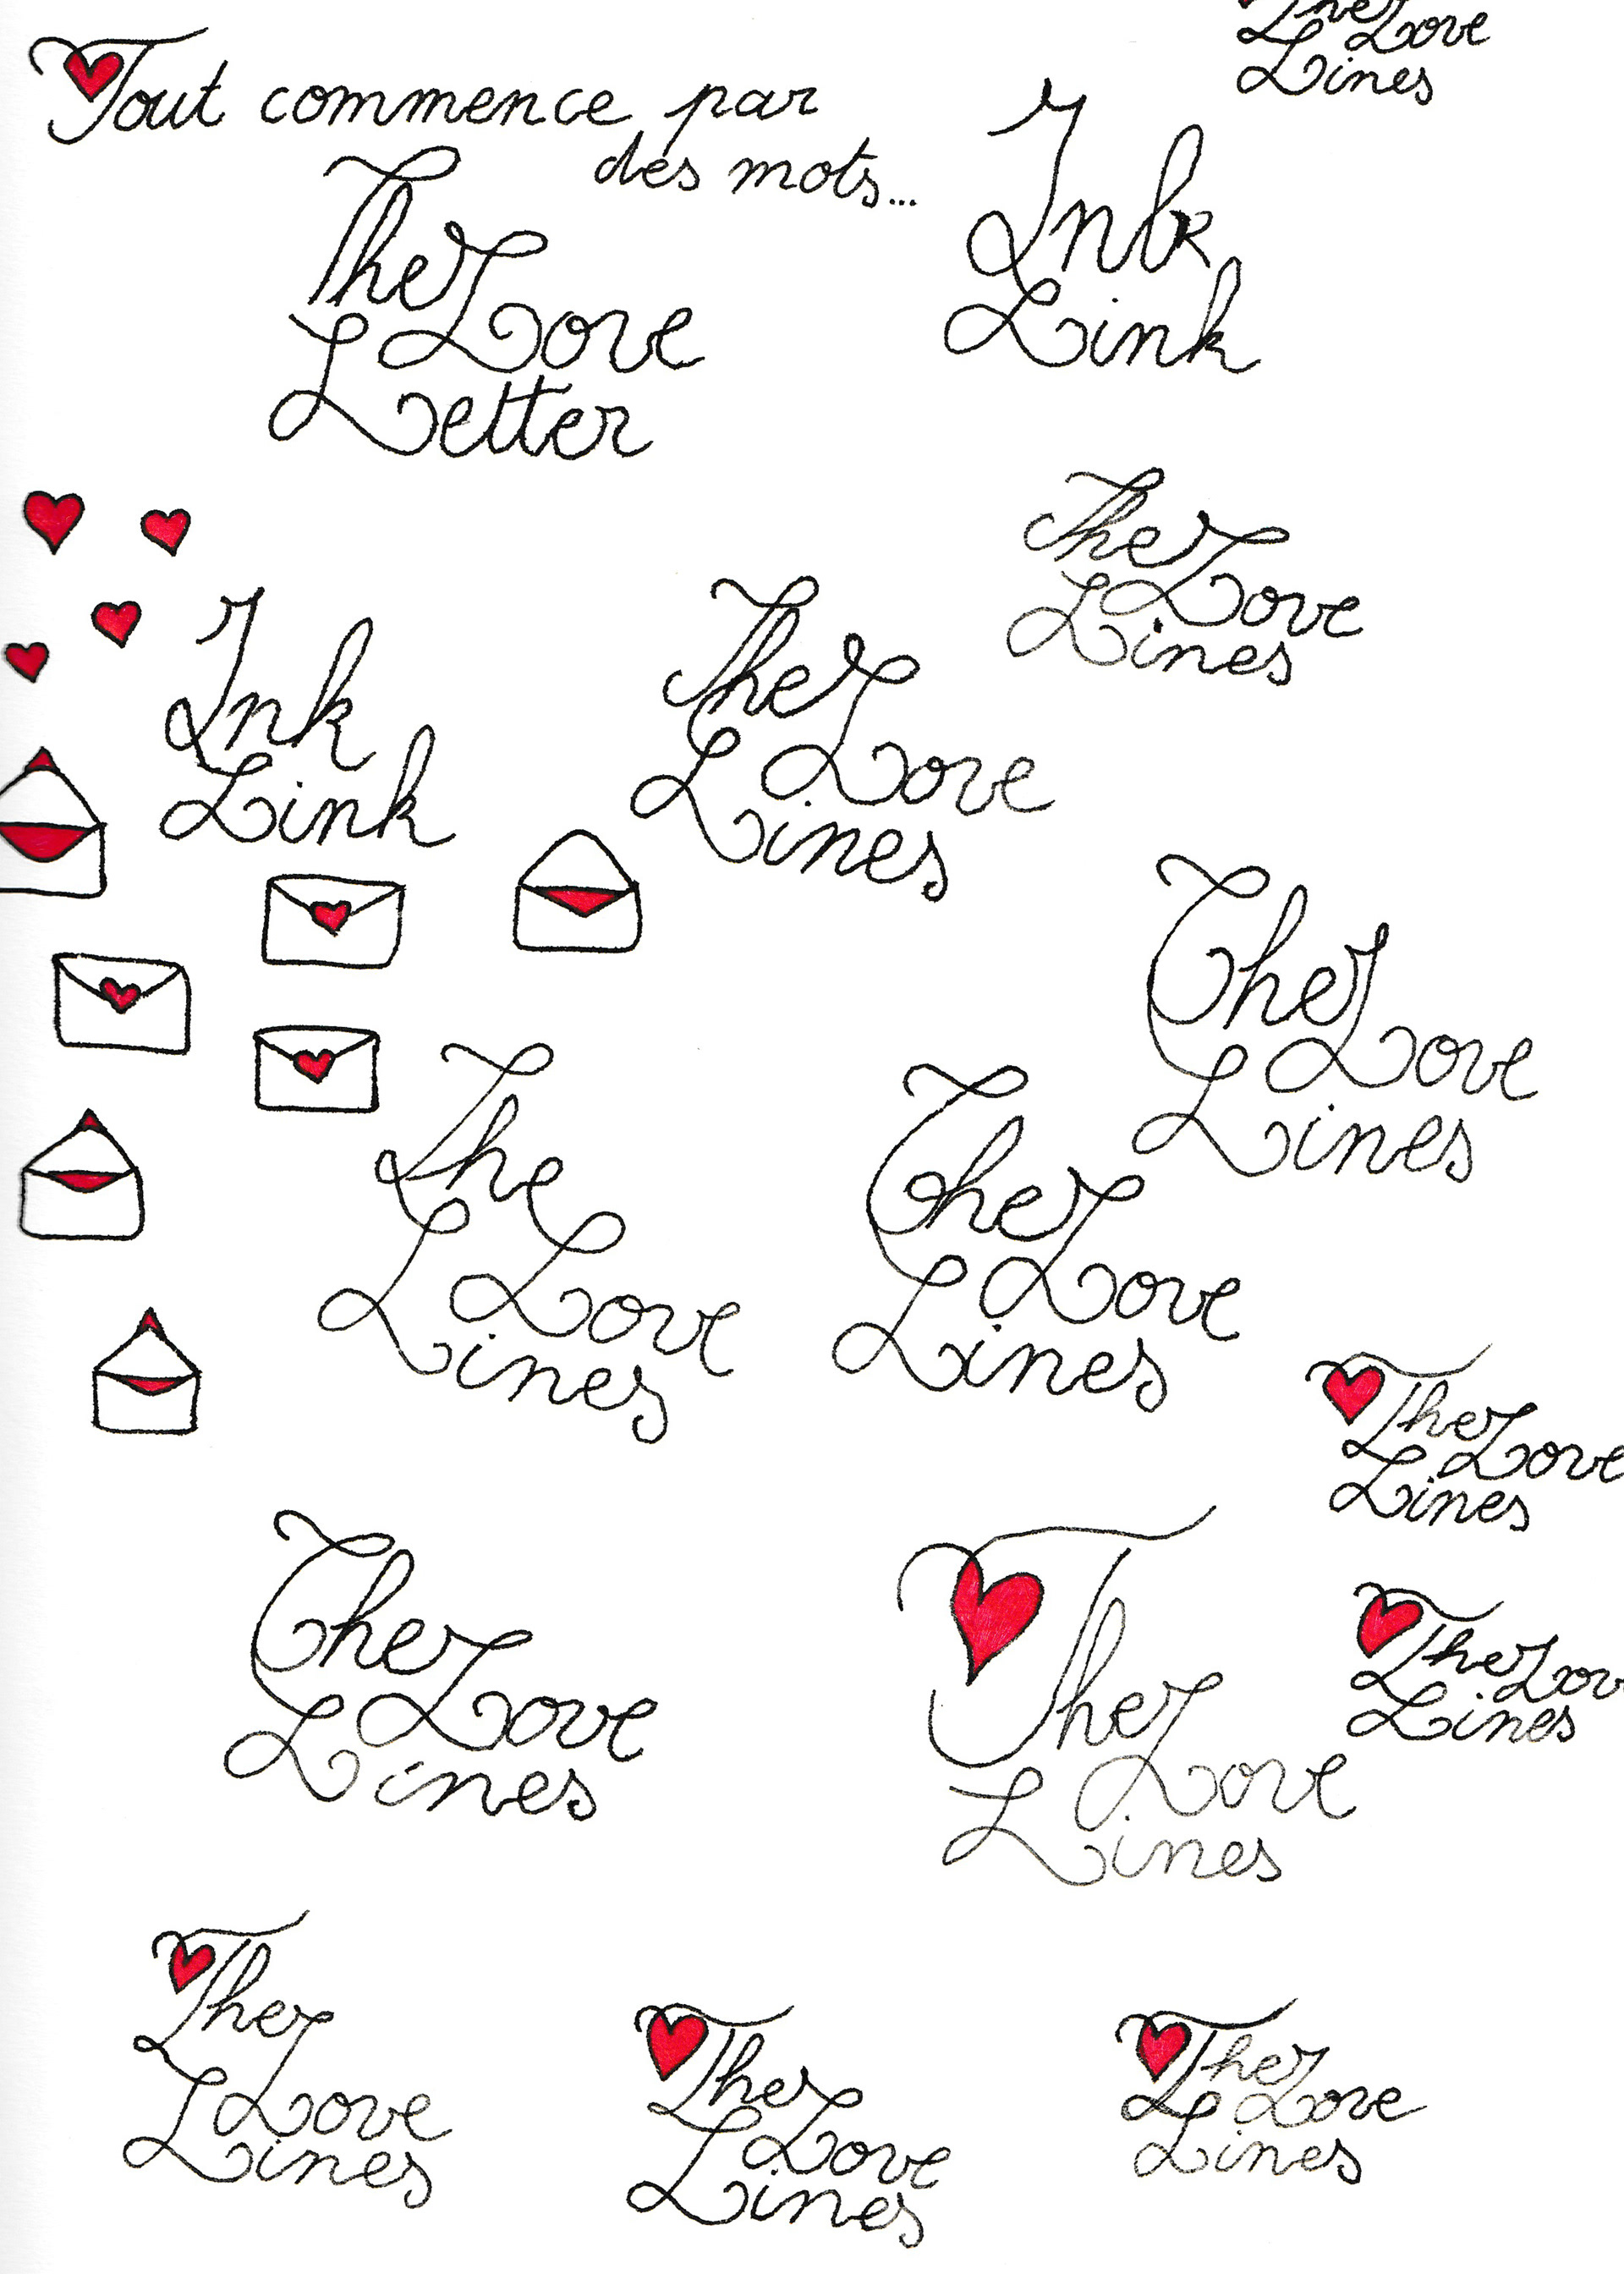 The Love
Lines
Tout commence par
des mots...
The Love
Letter
Ink
Link
The Love
Lines
Ink
Link
The Love
Lines
The Love
Lines
The
Love
Lines
The Love
Lines
The Love
Lines
The Love
Lines
The Love
Lines
The Lov
Lines
The
Love
Lines
The Love
Lines
The Love
Lines